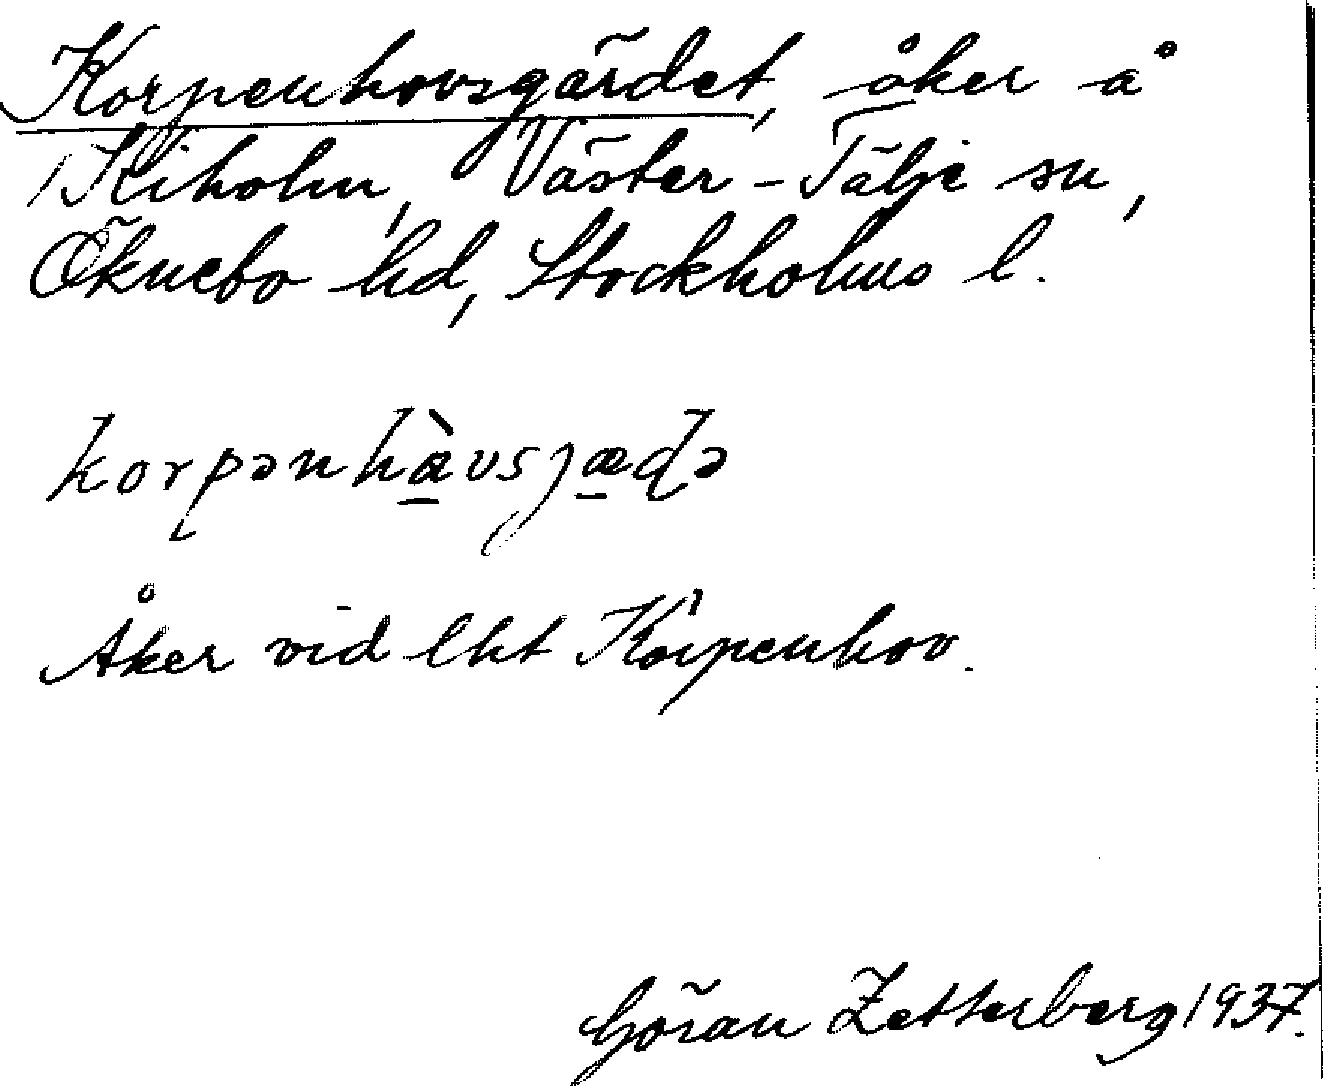 Korpenhovsgärdet, åker å
Kiholm, Väster-Tälje sn,
Öknebo hd, Stockholms l.
korpənhàvsjædə
Åker vid lht Korpenhov.
Göran Zetterberg 1937.